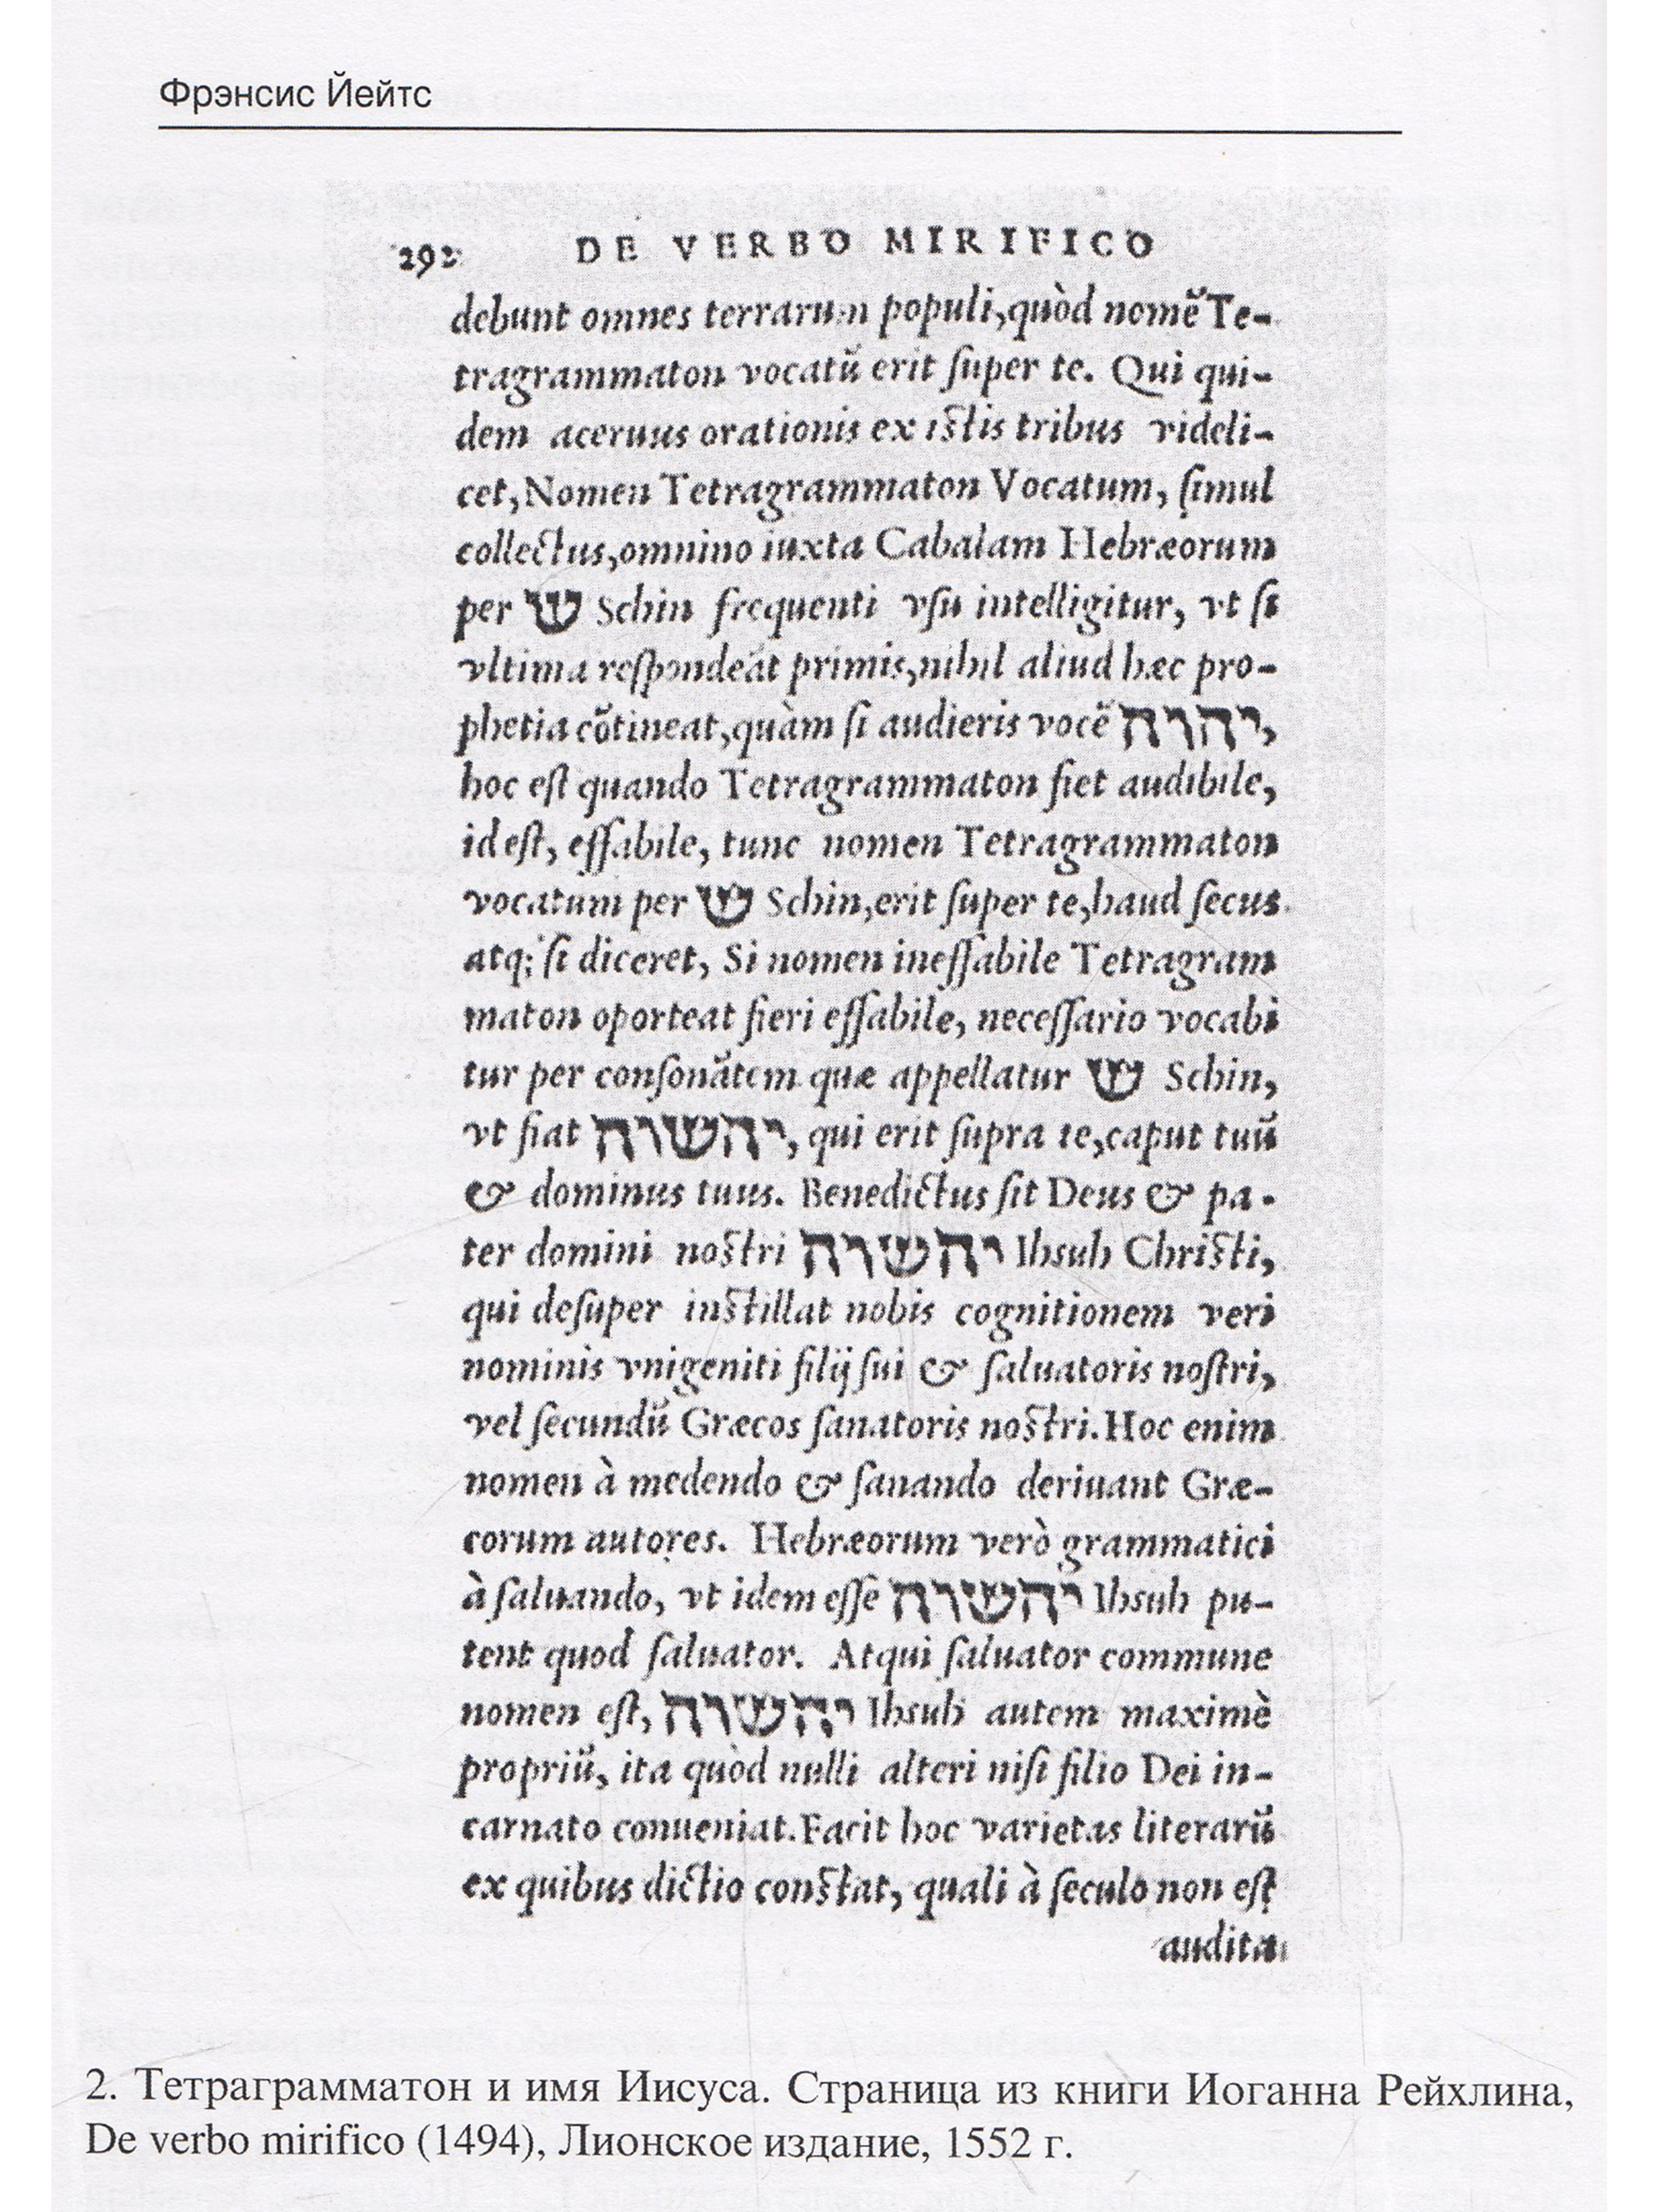 Фрэнсис Йейтс
292 DE VERBO MIRIFICO
debunt omnes terrarum populi, quòd nomẽ Te-
tragrammaton vocatũ erit ſuper te. Qui qui-
dem aceruus orationis ex iſtis tribus videli-
cet, Nomen Tetragrammaton Vocatum, ſimul
collectus, omnino iuxta Cabalam Hebræorum
per ש Schin frequenti vſu intelligitur, vt ſi
vltima reſpondeat primis, nihil aliud hæc pro-
phetia cõtineat, quàm ſi audieris vocẽ יהוה,
hoc eſt quando Tetragrammaton fiet audibile,
id eſt, effabile, tunc nomen Tetragrammaton
vocatum per ש Schin, erit ſuper te, haud ſecus
atq; ſi diceret, Si nomen ineffabile Tetragram
maton oporteat fieri effabile, neceſſario vocabi
tur per conſonãtem quæ appellatur ש Schin,
vt fiat יהשוה, qui erit ſupra te, caput tuũ
& dominus tuus. Benedictus ſit Deus & pa-
ter domini noſtri יהשוה Ihsuh Chriſti,
qui deſuper inſtillat nobis cognitionem veri
nominis vnigeniti filij ſui & ſaluatoris noſtri,
vel ſecundũ Græcos ſanatoris noſtri. Hoc enim
nomen à medendo & ſanando deriuant Græ-
corum autores. Hebræorum verò grammatici
à ſaluando, vt idem eſſe יהשוה Ihsuh pu-
tent quod ſaluator. Atqui ſaluator commune
nomen eſt, יהשוה Ihsuh autem maximè
propriũ, ita quòd nulli alteri niſi filio Dei in-
carnato conueniat. Facit hoc varietas literarũ
ex quibus dictio conſtat, quali à ſeculo non eſt
audita
2. Тетраграмматон и имя Иисуса. Страница из книги Иоганна Рейхлина,
De verbo mirifico (1494), Лионское издание, 1552 г.